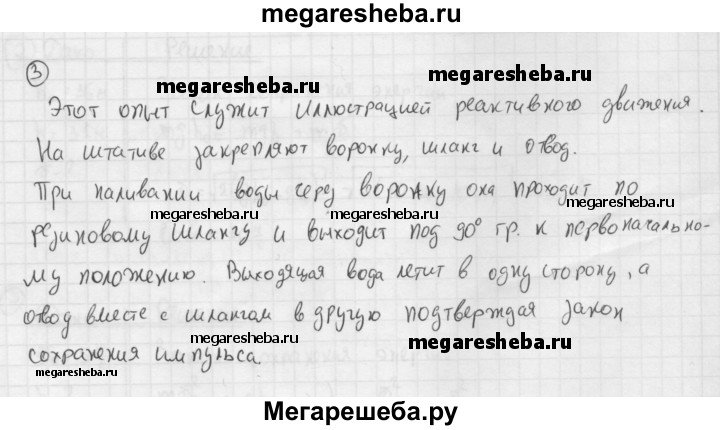 megaresheba.ru
3
megaresheba.ru megaresheba.ru
Этот опыт служит иллюстрацией реактивного движения.
На штативе закрепляют воронку, шланг и отвод.
При наливании воды через воронку она проходит по
megaresheba.ru megaresheba.ru
резиновому шлангу и выходит под 90° гр. к первоначально-
му положению. Выходящая вода летит в одну сторону, а
megaresheba.ru
отвод вместе с шлангам в другую подтверждая закон
megaresheba.ru megaresheba.ru
сохранения импульса
megaresheba.ru
Мегарешеба.ру